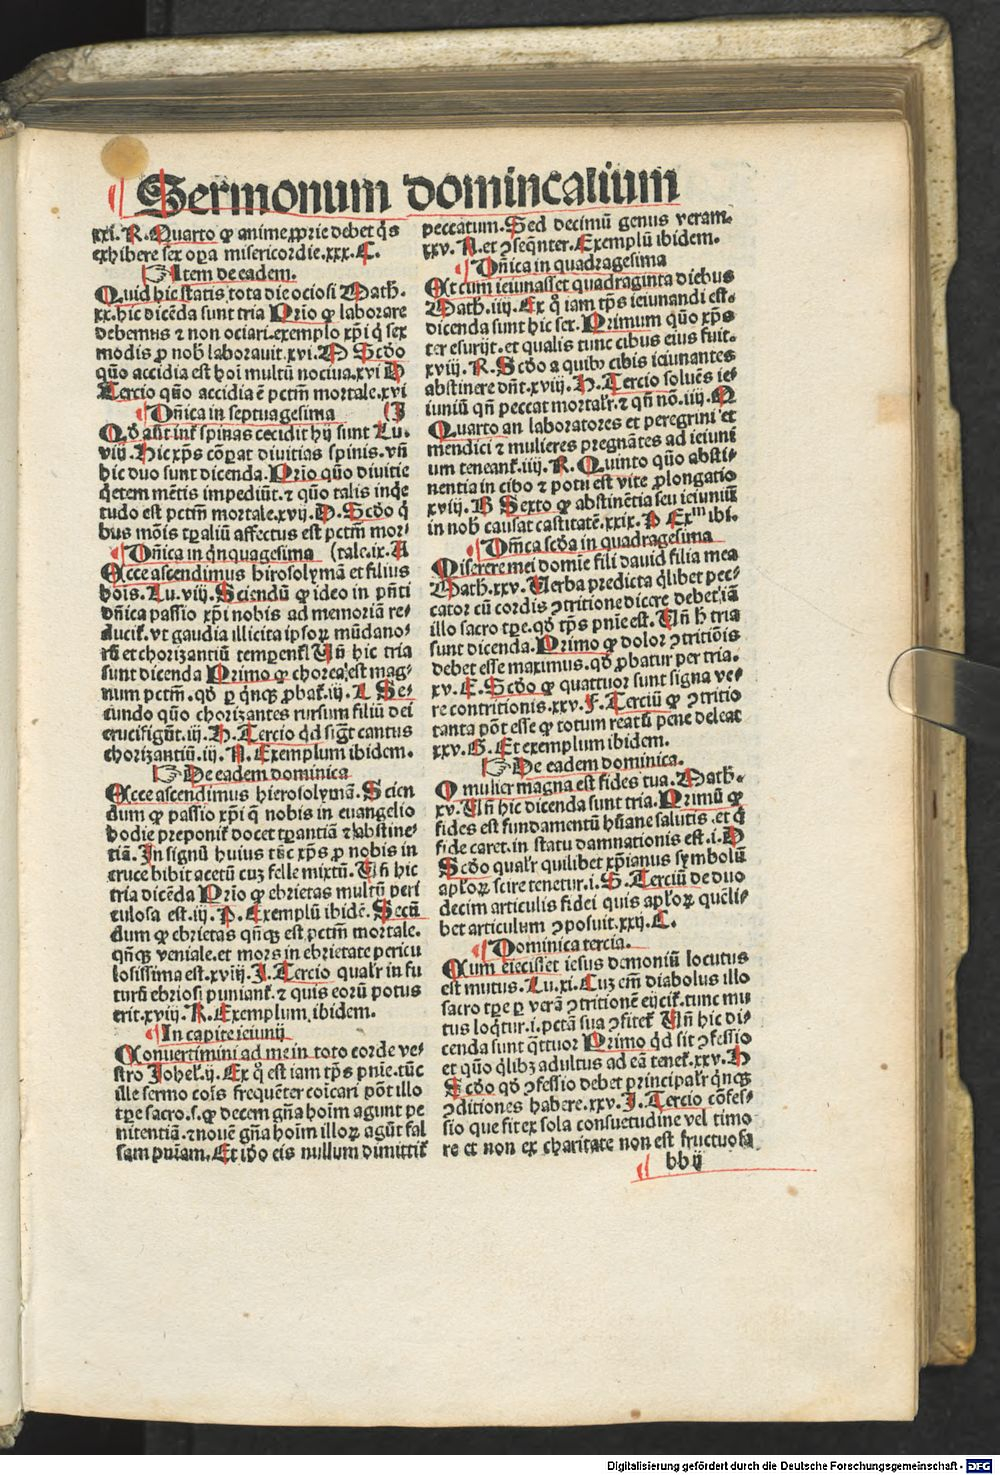 Sermonum domincalium
xxi. R. Quarto ꝙ anime ꝓprie debet q̄s
exhibere sex oꝑa misericordie. xxx. C.
☞ Item de eadem.
Quid hic statis tota die ociosi Math.
xx. hic dicēda sunt tria Prio ꝙ laborare
debemus ⁊ non ociari. exemplo xp̄i q̇ sex
modis ꝓ nob̄ laborauit. xvi. D Scd̄o
quō accidia est hoi multū nociua. xvi D
Tercio quō accidia ē pctm̄ mortale. xvi
Dn̄ica in septuagesima (I
Qd̄ aūt int̄ spinas cecidit hij sunt Lu.
viij. Hic xp̄s cōꝑat diuitias spinis. vn̄
hic duo sunt dicenda. Prio quō diuitie
q̇etem mētis impediūt. ⁊ quō talis inq̇e
tudo est pctm̄ mortale. xvij. D. Scd̄o q̇
bus mōis tꝑaliū affectus est pctm̄ mor⸗
Dn̄ica in qnquagesima (tale. ix. A
Ecce ascendimus hirosolymā et filius
hois. Lu. viij. Sciendū ꝙ ideo in pn̄ti
dn̄ica passio xp̄i nobis ad memoriā re⸗
ducit̄. vt gaudia illicita ipsoꝝ mūdano⸗
rū et chorizantiū temꝑent̄ Un̄ hic tria
sunt dicenda Primo ꝙ chorea est mag⸗
num pctm̄. qd̄ ꝑ qn̄qꝫ ꝓbat̄. iij. L Se⸗
cundo quō chorizantes rursum filiū dei
crucifigūt. iij. H. Tercio qd̄ sigt̄ cantus
chorizantiū. iij. A. Exemplum ibidem.
☞ De eadem dominica
Ecce ascendimus hierosolymā. Scien
dum ꝙ passio xp̄i q̄ nobis in euangelio
hodie preponit̄ docet tꝑantiā ⁊ abstine⸗
tiā. In signū huius tūc xp̄s ꝓ nobis in
cruce bibit acetū cuꝫ felle mixtū. Un̄ hic
tria dicēda Prio ꝙ ebrietas multū peri
culosa est. iij. P. Exemplū ibidē. Secū
dum ꝙ ebrietas qn̄qꝫ est pctm̄ mortale.
qn̄qꝫ veniale. et mors in ebrietate pericu
losissima est. xviij. I. Tercio qualr̄ in fu
turū ebriosi puniant̄. ⁊ quis eorū potus
erit. xviij. R. Exemplum ibidem.
In capite ieiunij
Conuertimini ad me in toto corde ve⸗
stro Johel. ij. Ex q̊ est iam tp̄s pnīe. tūc
ille sermo cōis frequēter cōicari pōt illo
tꝑe sacro. s. ꝙ decem gn̄a hoīm agunt pe
nitentiā. ⁊ nouē gn̄a hoīm illoꝝ agūt fal
sam pnīam. Et iō eis nullum dimittit̄
peccatum. Sed decimū genus veram.
xxv. A. et ꝯseqn̄ter. Exemplū ibidem.
Dn̄ica in quadragesima
Et cum ieiunasset quadraginta diebus
Math. iiij. Ex q̊ iam tp̄s ieiunandi est.
dicenda sunt hic sex. Primum quō xp̄s
ter esurijt. et qualis tunc cibus eius fuit.
xviij. R. Scd̄o a quibꝰ cibis ieiunantes
abstinere dn̄t. xviij. H. Tercio soluēs ie⸗
iuniū qn̄ peccat mortalr̄. ⁊ qn̄ nō. iiij. M
Quarto an laboratores et peregrini et
mendici ⁊ mulieres pregnātes ad ieiuni
um teneant̄. iiij. R. Quinto quō absti⸗
nentia in cibo ⁊ potu est vite ꝓlongatio
xviij. B Sexto ꝙ abstinētia seu ieiuniū
in nob̄ causat castitatē. xxix. A Exᵐ ibi.
Dn̄ica scd̄a in quadragesima
Miserere mei domie fili dauid filia mea
Math. xxv. Uerba predicta qlibet pec⸗
cator cū cordis ꝯtritione dicere debet iā
illo sacro tꝑe. qd̄ tp̄s pnīe est. Un̄ h̄ tria
sunt dicenda. Primo ꝙ dolor ꝯtritiōis
debet esse maximus. qd̄ ꝓbatur per tria.
xv. E. Scd̄o ꝙ quattuor sunt signa ve⸗
re contritionis. xxv. F. Terciū ꝙ ꝯtritio
tanta pōt esse ꝙ totum reatū pene deleat
xxv. G. Et exemplum ibidem.
☞ De eadem dominica.
O mulier magna est fides tua. Math.
xv. Un̄ hic dicenda sunt tria. Primū ꝙ
fides est fundamentū hūane salutis. et q̇
fide caret. in statu damnationis est. i. D
Scd̄o qualr̄ quilibet xp̄ianus symbolū
apl̄oꝝ scire tenetur. i. G. Terciū de duo
decim articulis fidei quis apl̄oꝝ quēli⸗
bet articulum ꝯposuit. xxij. C.
Dominica tercia.
Cum eiecisset iesus demoniū locutus
est mutus. Lu. xi. Cuꝫ em̄ diabolus illo
sacro tꝑe ꝑ verā ꝯtritionē eijcit̄. tunc mu
tus loq̇tur. i. pctā sua ꝯfitet̄ Un̄ hic di⸗
cenda sunt qttuor Primo qd̄ sit ꝯfessio
et quō qlibꝫ adultus ad eā tenet̄. xxv. H
Scd̄o qd̄ ꝯfessio debet principalr̄ qn̄qꝫ
ꝯditiones habere. xxv. I. Tercio cōfes⸗
sio que fit ex sola consuetudine vel timo
re et non ex charitate non est fructuosa
bb ij
Digitalisierung gefördert durch die Deutsche Forschungsgemeinschaft - DFG